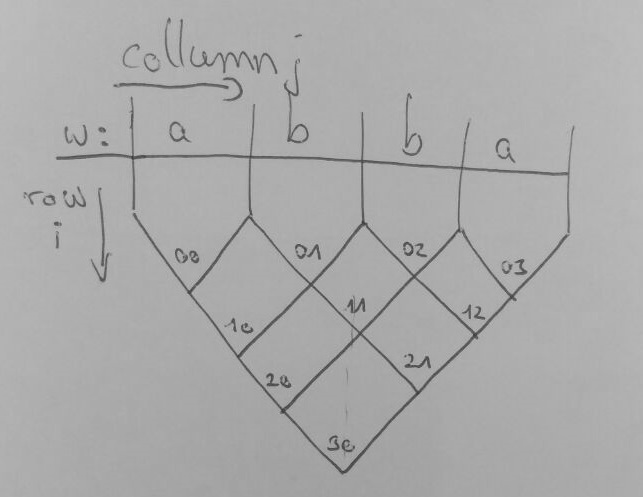 collumn j
w: a b b a
row
i
00 01 02 03
10 11 12
20 21
30